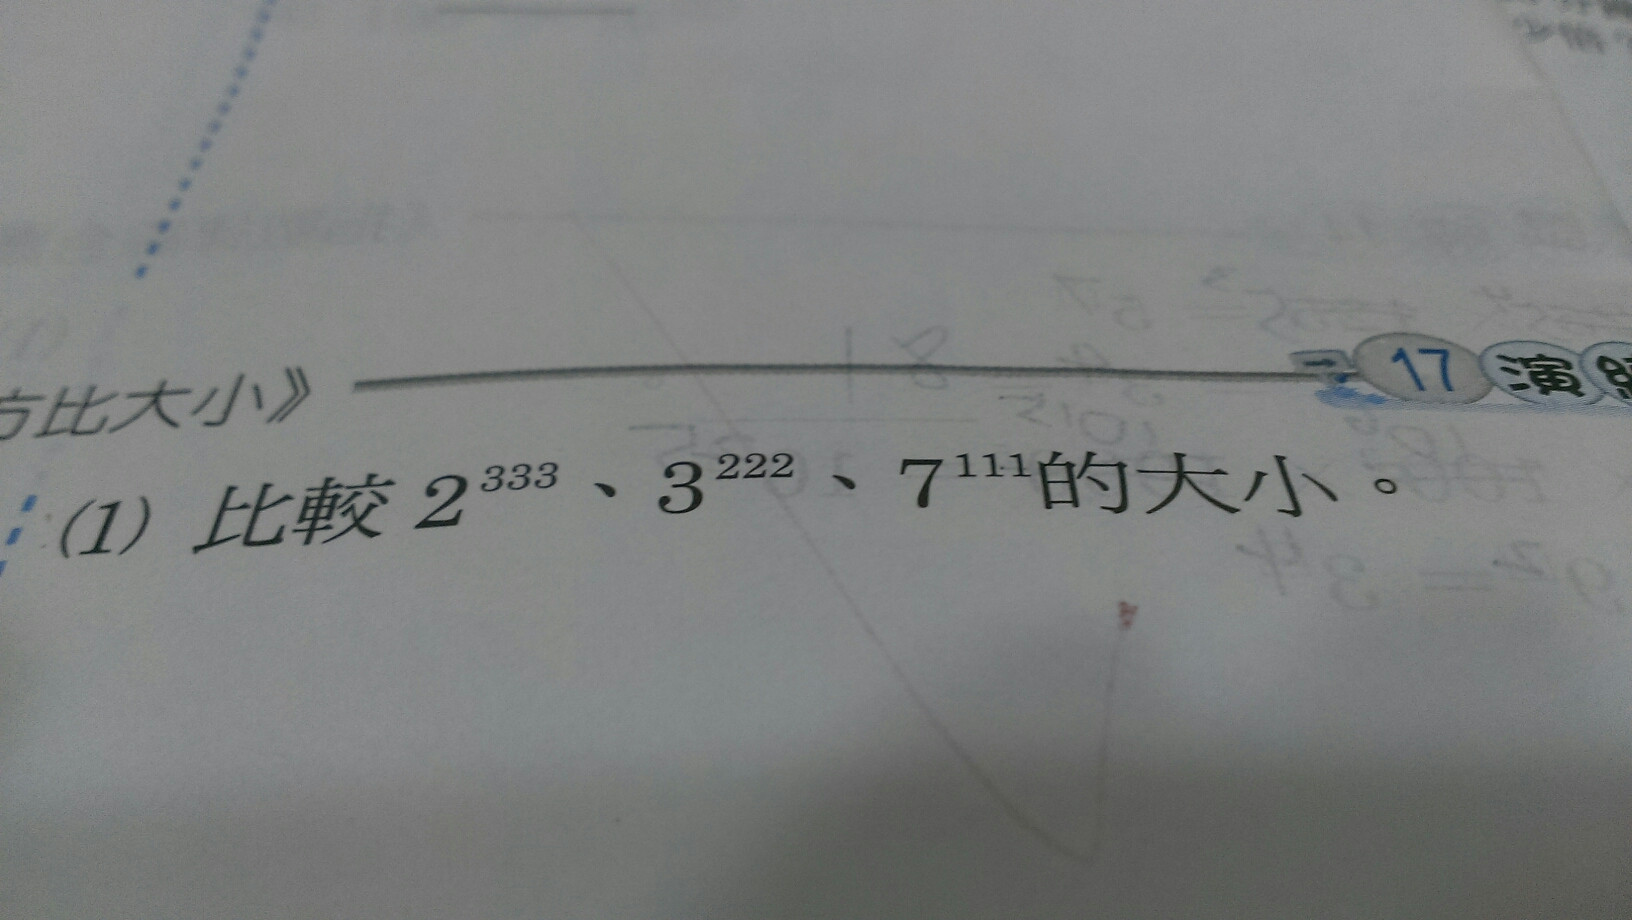 方比大小》 17 演
(1) 比較 2³³³、3²²²、7¹¹¹的大小。